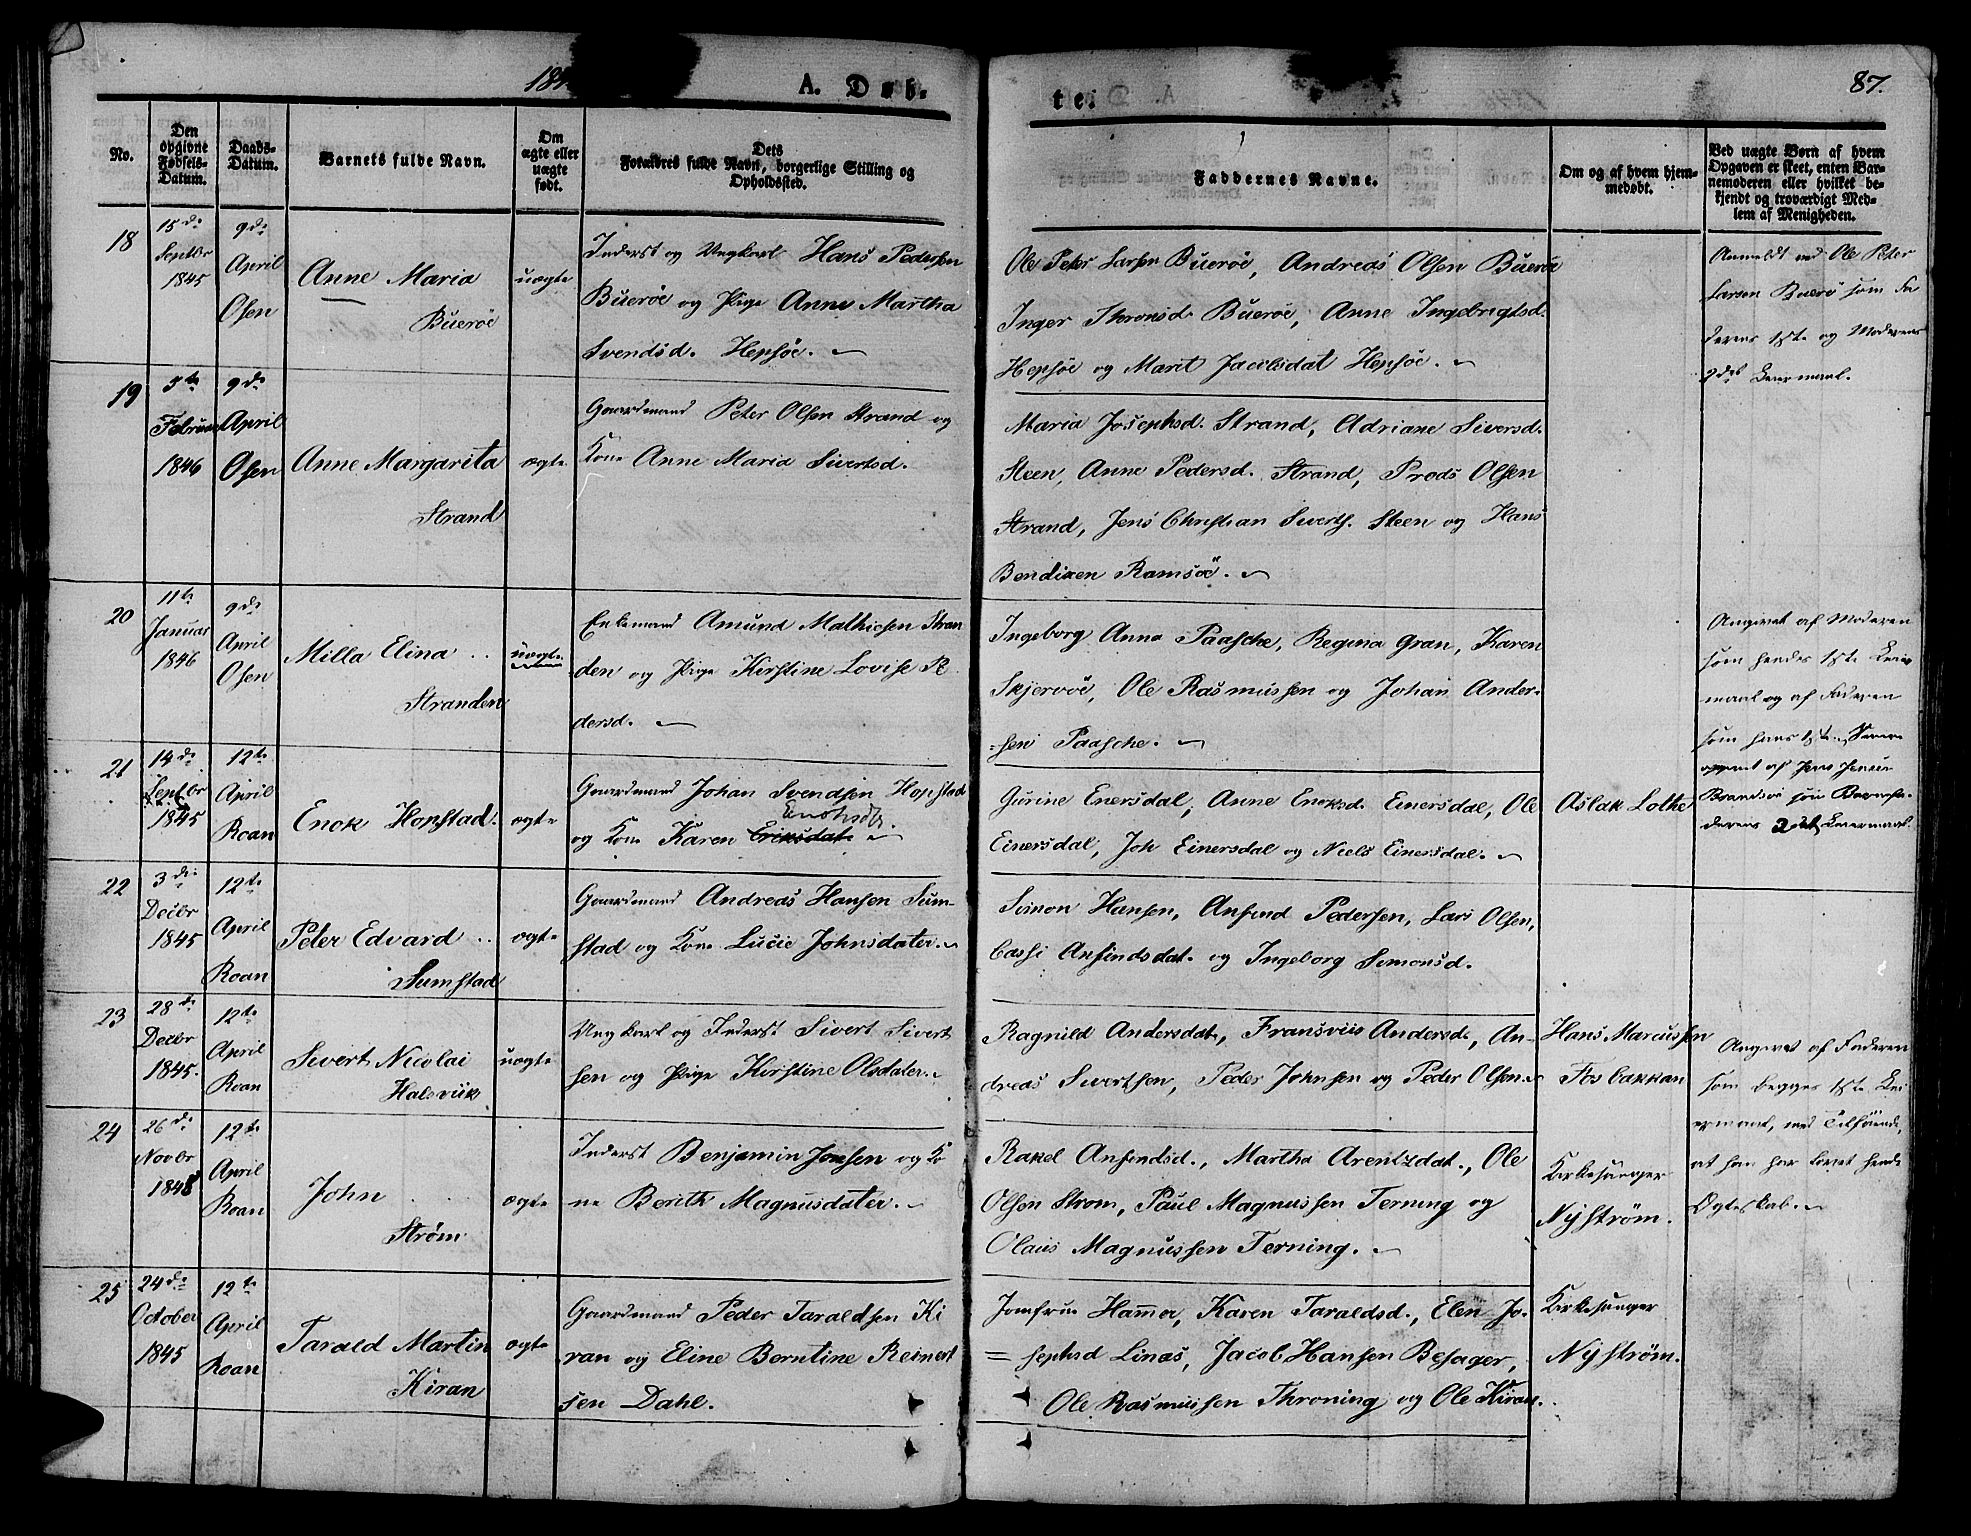 184
A. Døb-
te.
87.
No.
Den opgivne Fødsels-Datum.
Daabs-Datum.
Barnets fulde Navn.
Om ægte eller uægte født.
Dets Forældres fulde Navn, borgerlige Stilling og Opholdssted.
Faddernes Navne.
Om og af hvem hjem-medøbt.
Ved uægte Børn af hvem Opgaven er skeet, enten Bar-nemoderen eller hvilket be-kjendt og troværdigt Med-lem af Menigheden.
18
15de
Septbr
1845
9de
April
Osen
Anne Maria
Buerøe
uægte
Inderst og Ungkarl Hans Pedersen
Buerøe og Pige Anne Martha
Svendsd. Hepsøe.
Ole Peter Larsen Buerøe, Andreas Olsen Buerøe
Inger Thronsd. Buerøe, Anne Ingebrigtsd.
Hepsøe og Marit Jacobsdat Hepsøe.
Anmeldt ved Ole Peter
Larsen Buerø som Fa
derens 1ste og Moderens
2det Leiermaal.
19
5te
Februar
1846
9de
April
Osen
Anne Margarita
Strand
ægte
Gaardmand Peter Olsen Strand og
Kone Anne Maria Sivertsd.
Maria Josephsd. Strand, Adriane Siversd.
Steen, Anne Pedersd. Strand, Prods Olsen
Strand, Jens Christian Siverts. Steen og Hans
Bendixen Ramsøe.
20
11te
Januar
1846
9de
April
Osen
Milla Elina
Stranden
uægte
Enkemand Amund Mathiesen Stran
den og Pige Kirstine Lovise Pe
dersd.
Ingeborg Anna Paasche, Regina Gran, Karen
Skjervøe, Ole Rasmussen og Johan Ander-
sen Paasche.
Angivet af Moderen
som hendes 1ste Leier
maal og af Faderen
som hans 1ste. Senere
af Jens Jensen
Brandsø som Barnefa
derens 2det Leiermaal.
21
14de
Septbr
1845
12te
April
Roan
Enok Hopstad.
ægte
Gaardmand Johan Svendsen Hopstad
Enoksdtr.
og Kone Karen Eriksdat.
Gurine Enersdal, Anne Enoksd. Einersdal, Ole
Einersdal, Joh Einersdal og Niels Einersdal.
Aslak Lothe
22
3de
Decbr
1845
12te
April
Roan
Peter Edvard
Sumstad
ægte
Gaardmand Andreas Hansen Sum-
stad og Kone Lucie Johnsdater.
Simon Hansen, Anfind Pedersen, Lars Olsen,
Cassi Anfindsdat. og Ingeborg Simonsd.
23
28de
Decbr
1845.
12te
April
Roan
Sivert Nicolai
Halsviik
uægte
Ungkarl og Inderst Sivert Sivert
sen og Pige Kirstine Olsdater.
Ragnild Andersdat., Fransviis Andersd., An-
dreas Sivertsen, Peder Johnsen og Peder Olsen.
Hans Marcussen
Fosbakkan
Angivet af Faderen
som begges 1ste Lei
ermaal, med Tilføiende,
at han har lovet hende
Ægteskab.
24
26de
Novbr
1845
12te
April
Roan
John
Strøm
ægte
Inderst Benjamin Jonsen og Ko
ne Berith Magnusdater.
Rakel Anfindsd., Martha Arentzdat., Ole
Olsen Strom, Paul Magnussen Terning og
Olaus Magnussen Terning.
Kirkesanger
Nyström.
25
24de
October
1845
12te
April
Roan
Tarald Martin
Kiran
ægte
Gaardmand Peder Taraldsen Ki
ran og Eline Berntine Reinert
sen Dahl.
Jomfrue Hammer, Karen Taraldsd., Elen Jo-
= sephsd Linæs, Jacob Hansen Besager,
Ole Rasmussen Throning og Ole Kiran.
Kirkesanger
Nyström.